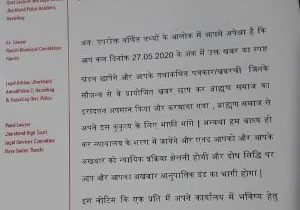 Jharkhand Police Academy,
Hazaribag
Ex. Lawyer
Ranchi Municipal Corporation
Ranchi
Legal Advisor Jharkhand
Hazaribag
Panel Lawyer
Jharkhand High Court
Legal Services Committee
Ranchi
अतः उपरोक्त वर्णित तथ्यों के आलोक में आपसे अपेक्षा है कि
आप कल दिनांक 27.05.2020 के अंक में उक्त खबर का स्पष्ट
खंडन छापेंगे और आपके तथाकथित पत्रकार/खबरची जिनके
सौजन्य से ये प्रायोजित खबर छाप कर ब्राह्मण समाज का
इरादतन अपमान किया और करवाया गया , ब्राह्मण समाज से
अपने इस कुकृत्य के लिए माफ़ी मांगे | अन्यथा हम बाध्य हो
कर न्यायालय के शरण में जायेंगे और एतद आपको और आपके
अखबार को न्यायिक प्रक्रिया झेलनी होगी और दोष सिद्धि पर
आप और आपका अखबार आनुपातिक दंड का भागी होगा |
इस नोटिस कि एक प्रति में अपने कार्यालय में भविष्य हेतु